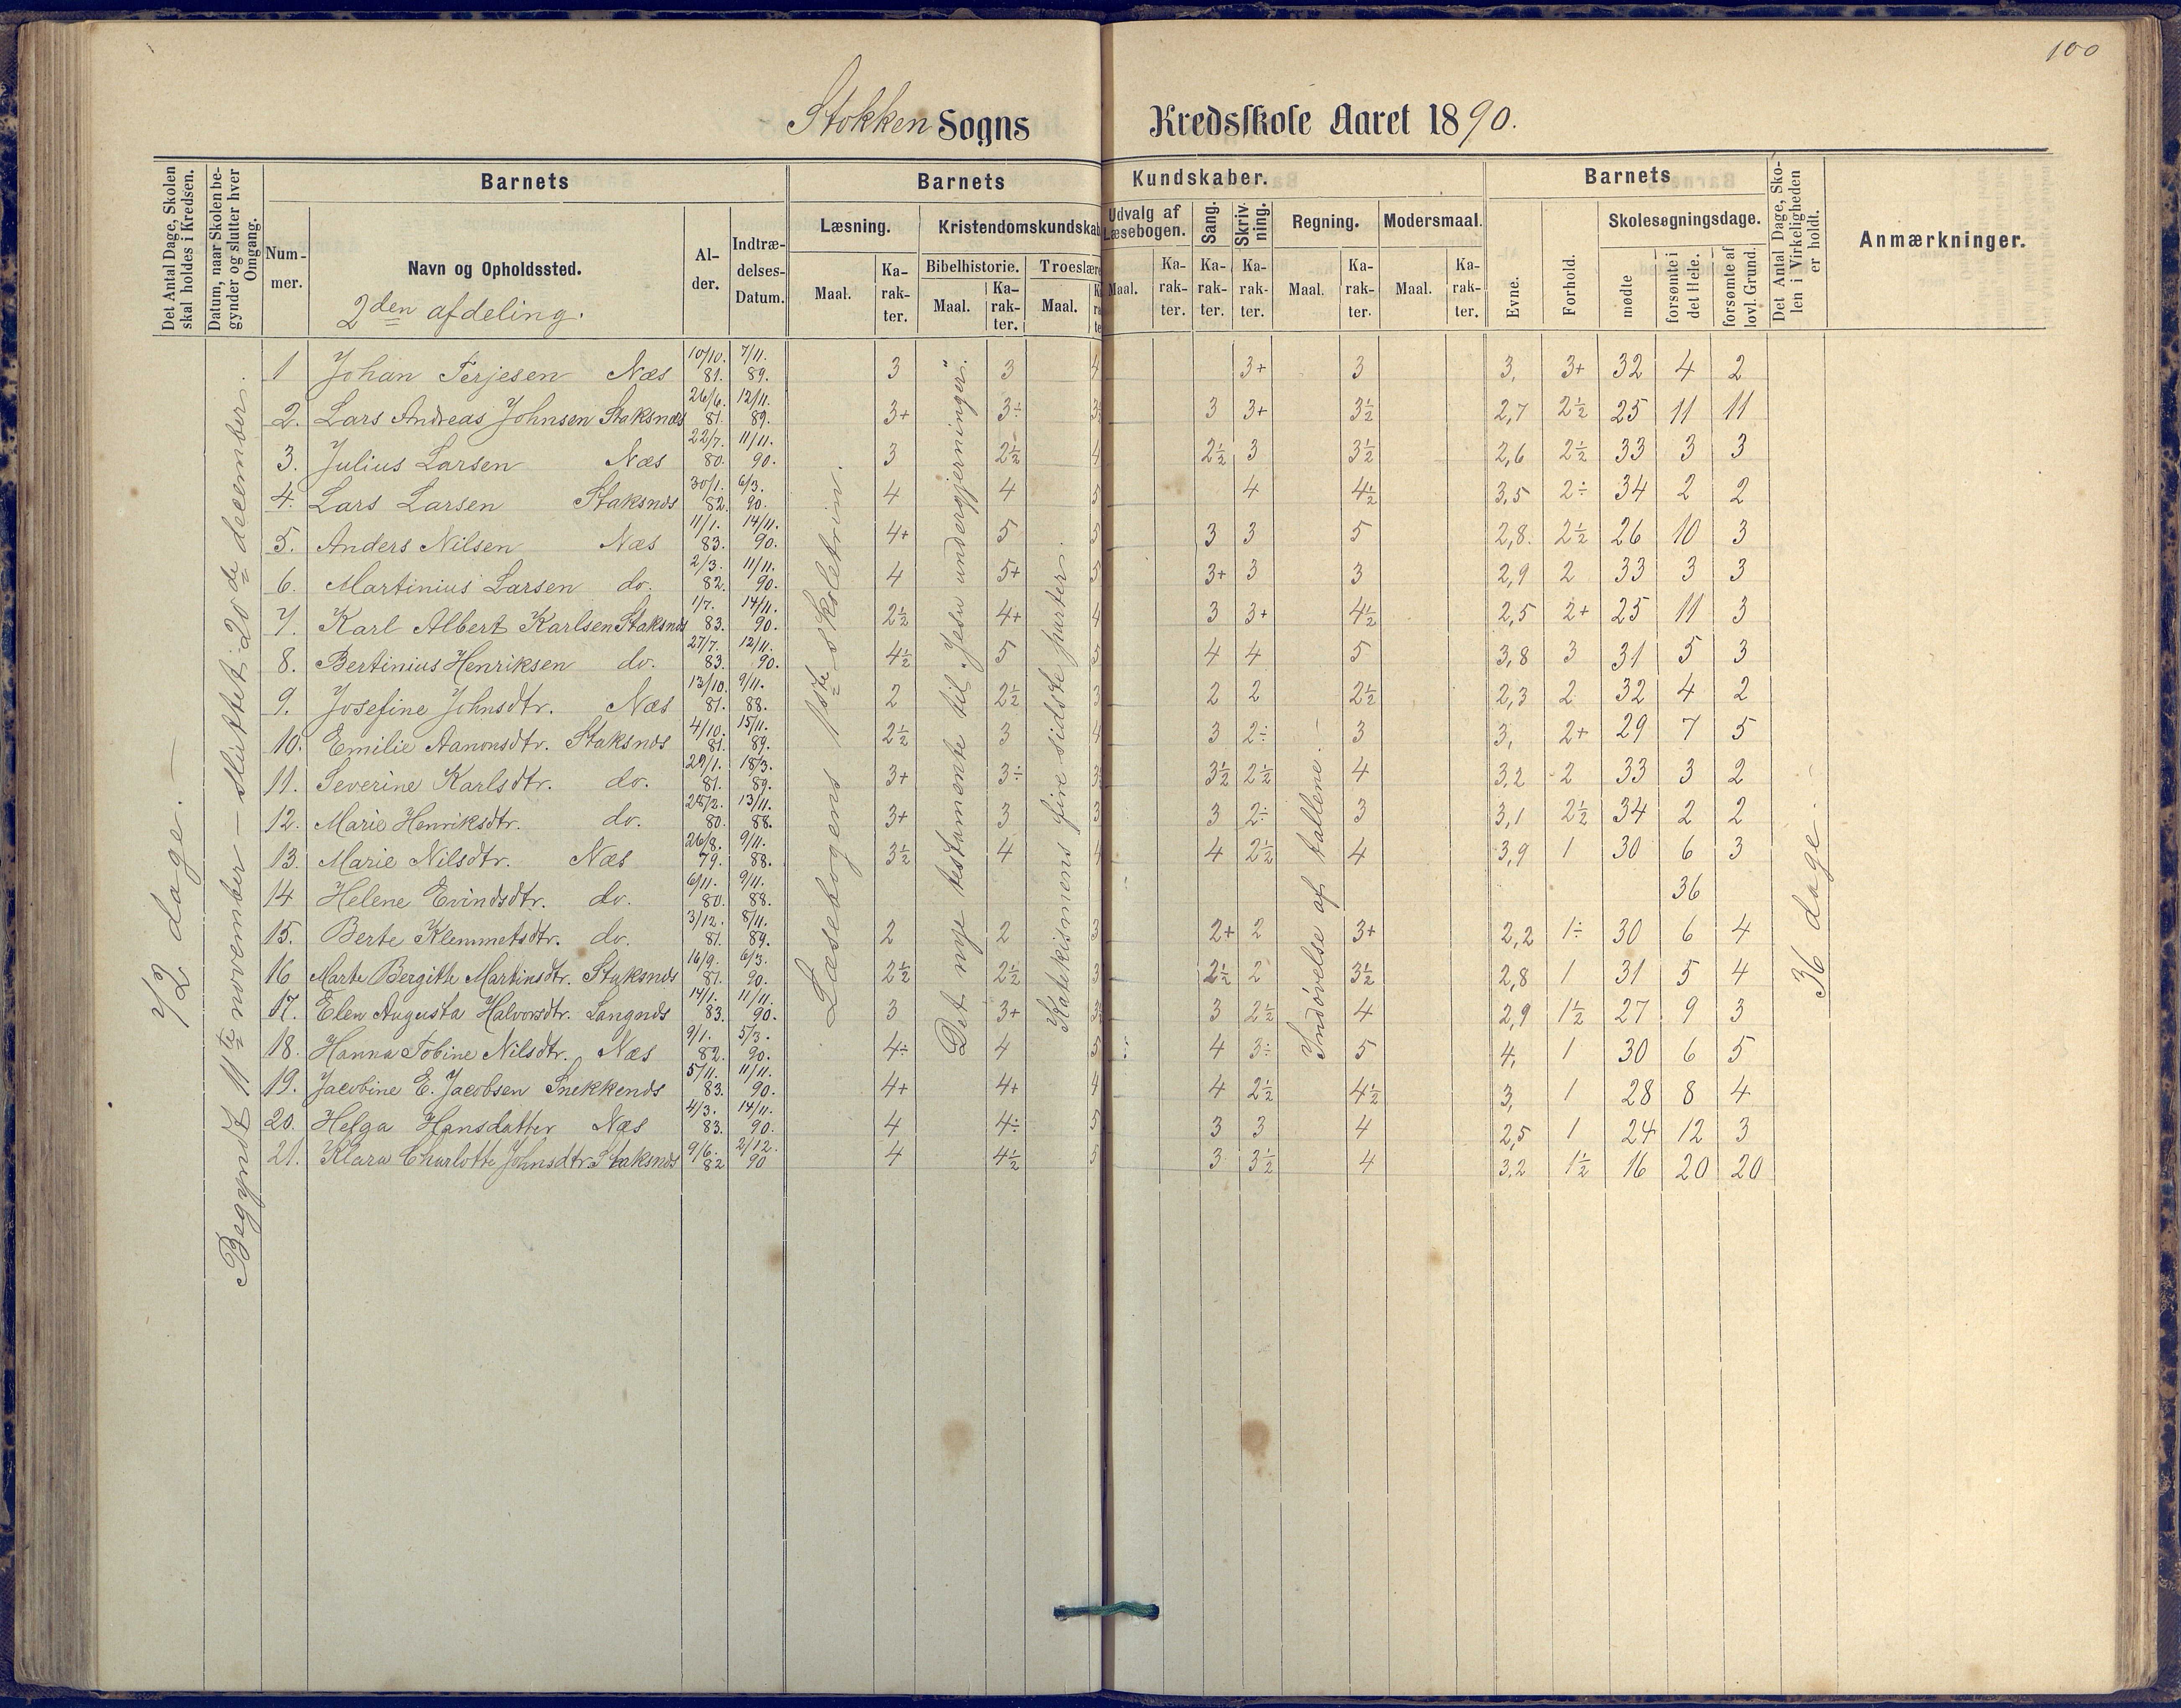 100
Stokken Sogns Kredsskole Aaret 1890.
Det Antal Dage, Skolen skal holdes i Kredsen.
Datum, naar Skolen begynder og slutter hver Omgang.
Barnets
Barnets Kundskaber.
Barnets
Det Antal Dage, Skolen i Virkeligheden er holdt.
Anmærkninger.
Nummer.
Navn og Opholdssted.
Alder.
Indtrædelses-Datum.
Læsning.
Kristendomskundskab
Udvalg af Læsebogen.
Sang.
Skrivning.
Regning.
Modersmaal.
Evne.
Forhold.
Skolesøgningsdage.
Bibelhistorie.
Troeslære
Maal.
Karakter.
Maal.
Karakter.
Maal.
Maal.
Karakter.
Karakter.
Karakter.
Maal.
Karakter.
Maal.
Karakter.
mødte
forsømte i det Hele.
forsømte af lovl. Grund.
2den afdeling.
72 dage. —
Begyndt 11te november — sluttet 20de december.
Læsebogens 1ste skoletrin.
Det nye testamente til „Jesu undergjerninger".
Katekismens fire sidste parter.
Indøvelse af tallene.
36 dage. —
1 Johan Terjesen Næs 10/10. 81. 7/11. 89. 3 3 4 3+ 3 3, 3+ 32 4 2
2. Lars Andreas Johnsen Staksnæs 26/6. 81. 12/11. 89. 3+ 3÷ 3 3 3+ 3½ 2,7 2½ 25 11 11
3. Julius Larsen Næs 22/7. 80. 11/11. 90. 3 2½ 4 2½ 3 3½ 2,6 2½ 33 3 3
4. Lars Larsen Staksnæs 30/1. 82. 6/3. 90. 4 4 5 4 4½ 3,5 2÷ 34 2 2
5. Anders Nilsen Næs 11/1. 83. 14/11. 90. 4+ 5 5 3 3 5 2,8. 2½ 26 10 3
6. Martinius Larsen do. 2/3. 82. 11/11. 90. 4 5+ 5 3+ 3 3 2,9 2 33 3 3
7. Karl Albert Karlsen Staksnæs 1/7. 83. 14/11. 90. 2½ 4+ 4 3 3+ 4½ 2,5 2+ 25 11 3
8. Bertinius Henriksen do. 27/7. 83. 12/11. 90. 4½ 5 5 4 4 5 3,8 3 31 5 3
9. Josefine Johnsdtr. Næs 13/10. 81. 9/11. 88. 2 2½ 3 2 2 2½ 2,3 2 32 4 2
10. Emilie Aanonsdtr. Staksnæs 4/10. 81. 15/11. 89. 2½ 3 4 3 2÷ 3 3, 2+ 29 7 5
11. Severine Karlsdtr. do. 29/1. 81. 18/3. 89. 3+ 3÷ 3 3½ 2½ 4 3,2 2 33 3 2
12. Marie Henriksdtr. do. 28/2. 80. 13/11. 88. 3+ 3 3 3 2÷ 3 3,1 2½ 34 2 2
13. Marie Nilsdtr. Næs 26/8. 79. 9/11. 88. 3½ 4 4 4 2½ 4 3,9 1 30 6 3
14 Helene Evindsdtr. do. 6/11. 80. 9/11. 88. 36
15. Berte Klemmetsdtr. do. 3/12. 81. 8/11. 89. 2 2 3 2+ 2 3+ 2,2 1÷ 30 6 4
16 Marte Bergitte Martinsdtr. Staksnæs 16/9. 81. 6/3. 90. 2½ 2½ 3 2½ 2 3½ 2,8 1 31 5 4
17. Elen Augusta Halvorsdtr. Langnæs 14/1. 83. 11/11. 90. 3 3+ 3 3 2½ 4 2,9 1½ 27 9 3
18. Hanna Tobine Nilsdtr. Næs 9/1. 82. 5/3. 90. 4÷ 4 5 4 3÷ 5 4, 1 30 6 5
19. Jacobine E. Jacobsen Snekkenæs 5/11. 83. 11/11. 90. 4+ 4+ 4 4 2½ 4½ 3, 1 28 8 4
20. Helga Hansdatter Næs 4/3. 83. 14/11. 90. 4 4÷ 5 3 3 4 2,5 1 24 12 3
21. Klara Charlotte Johnsdtr. Staksnæs 9/6. 82 2/12. 90 4 4½ 5 3 3½ 4 3,2 1½ 16 20 20